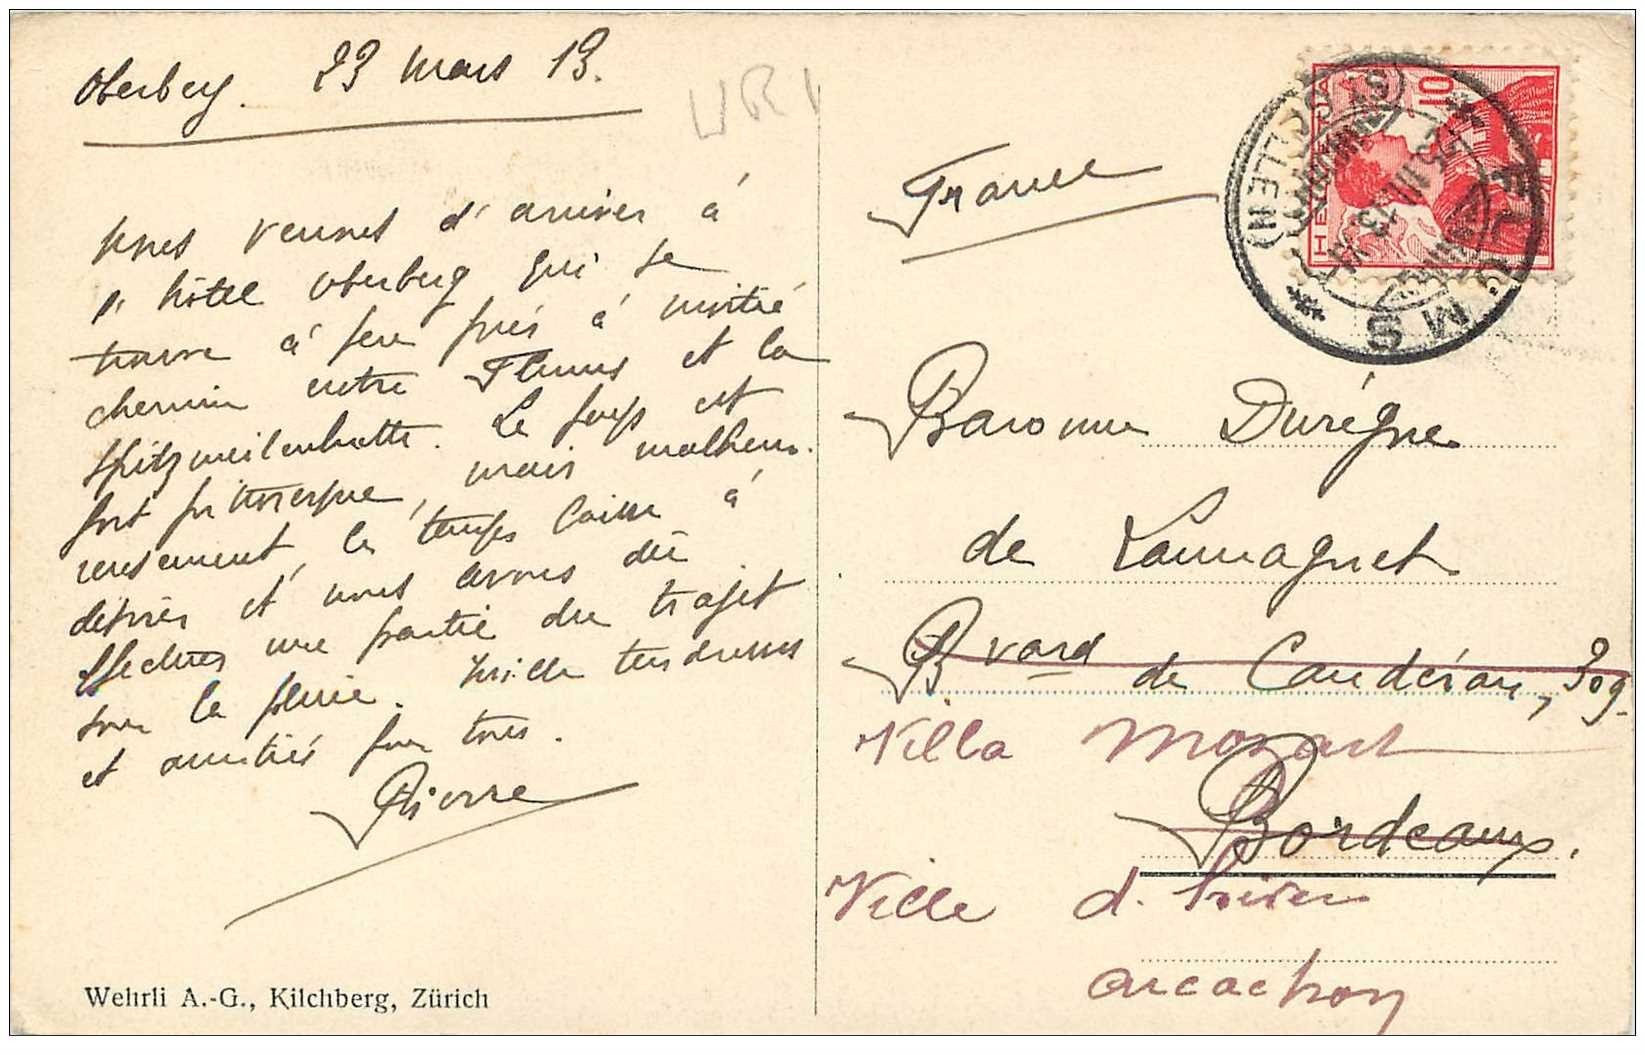 Oberberg. 23 Mars 13.
WR
Nous venons d'arriver à
l'hôtel Oberberg qui se
trouve à peu près à moitié
chemin entre Flums et la
Spitzmeilenhutte. Le pays est
fort pittoresque, mais malheu-
reusement, le temps laisse à
désirer et nous avons dû
effectuer une partie du trajet
sous la pluie. Mille tendresses
et amitiés pour tous.
Pierre
Wehrli A.-G., Kilchberg, Zürich
HELVETIA 10
FLUMS
23.III.13
(ST. GALLEN)
France
Baronne Durègne
de Launaguet
Bvard de Caudéran, 309.
Villa Mozart
Bordeaux.
Ville d'hiver
Arcachon